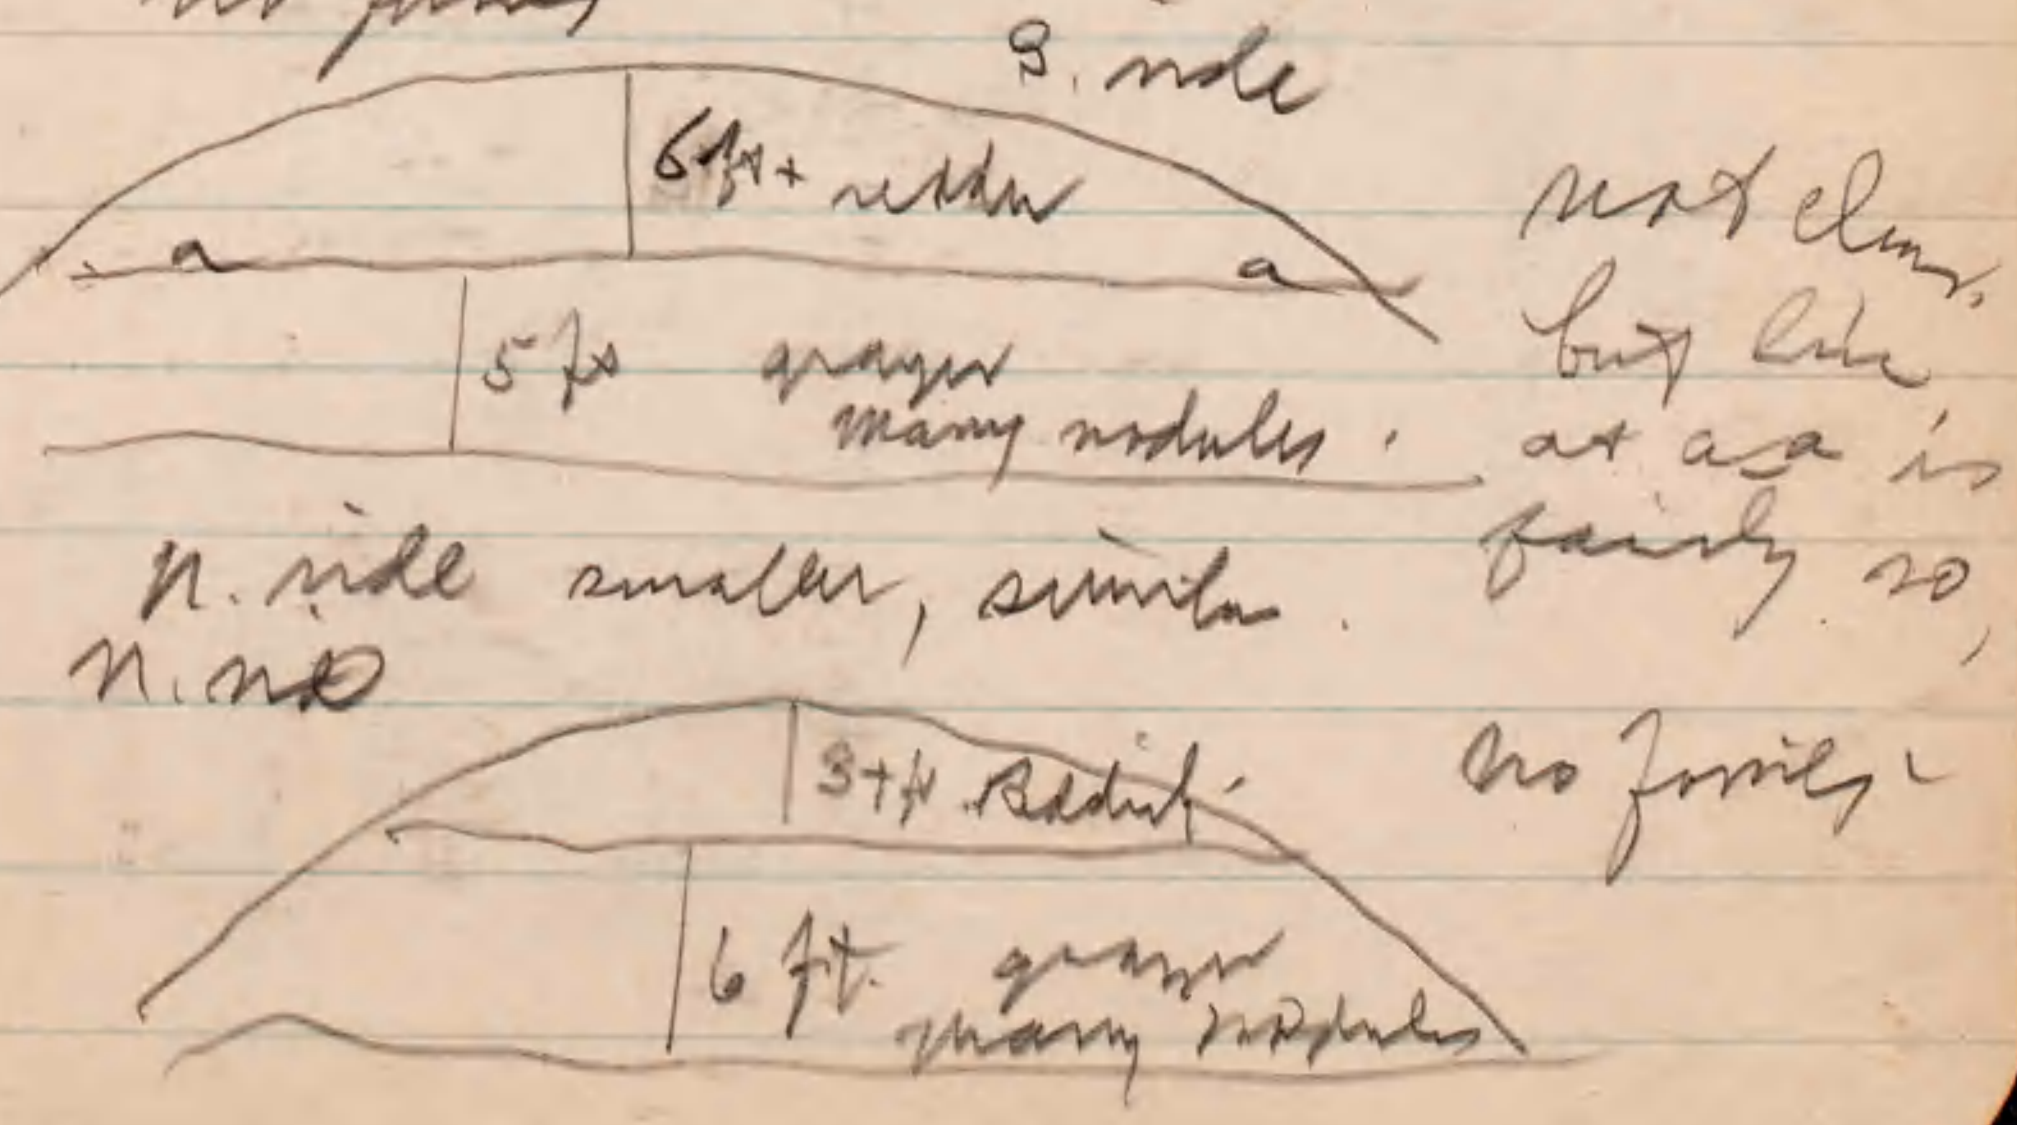 no fossils
S. side
6 ft+ redder
a
a
5 ft grayer
many nodules.
not clear,
but line
at a-a is
fairly so,
N. side smaller, similar.
N. side
3+ ft. Reddish
no fossils
6 ft. grayer
many nodules